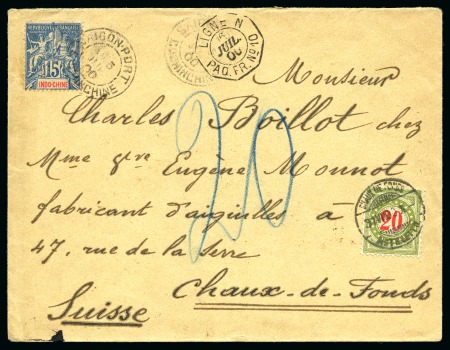 REPUBLIQUE FRANÇAISE
15
INDO-CHINE
SAIGON-PORT
LIGNE N
JUIL
00
PAQ. FR. Nº 10
Monsieur
Charles Boillot chez
Mme Vve Eugène Monnot
fabricant d'aiguilles à
47, rue de la Serre
Chaux-de-Fonds
Suisse
20
20